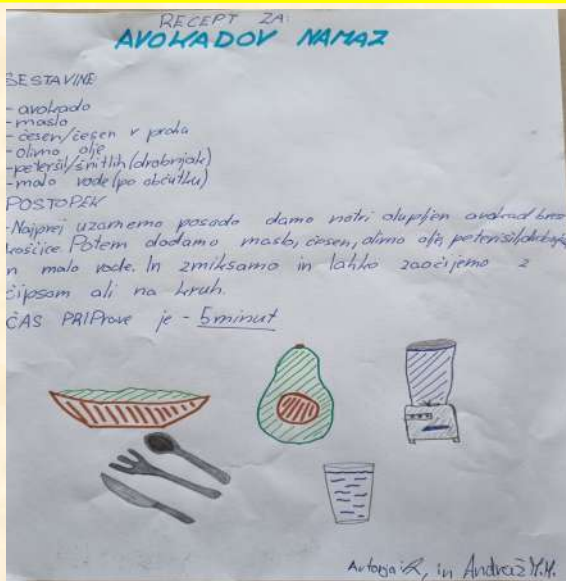 RECEPT ZA:
AVOKADOV NAMAZ
SESTAVINE
- avokado
- maslo
- česen/česen v prahu
- olivno olje
- peteršil/šnitlih(drobnjak)
- malo vode(po občutku)
POSTOPEK
-Najprej vzamemo posodo damo notri olupljen avokad brez
koščice. Potem dodamo maslo, česen, olivno olje, peteršilj/drobnjak
n malo vode. In zmiksamo in lahko z
čipsom ali na kruh.
ČAS PRIPrave je - 5minut
Avtorja: in Andraž M.M.